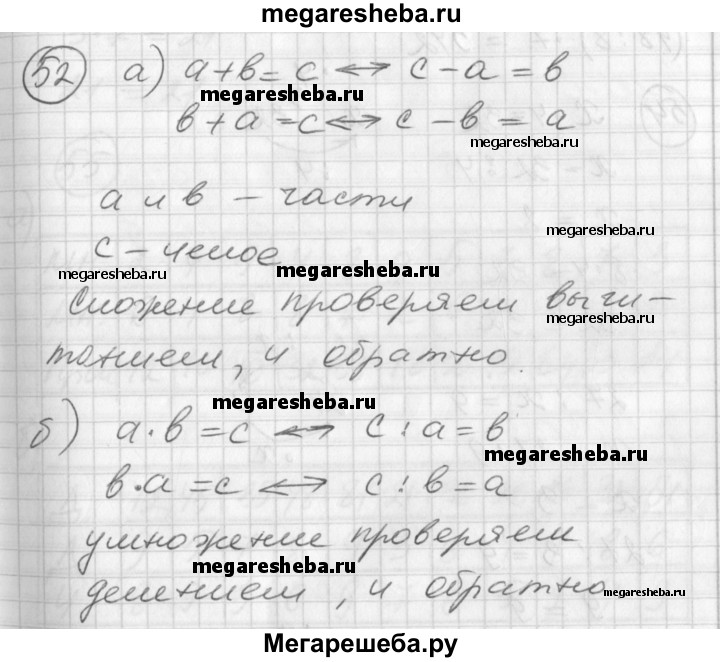 megaresheba.ru
52 а) а+в=с ↔ с-а=в
megaresheba.ru
в+а=с ↔ с-в=а
megaresheba.ru
а и в - части
megaresheba.ru
с - целое
megaresheba.ru megaresheba.ru
Сложение проверяем вычи-
megaresheba.ru
танием, и обратно.
megaresheba.ru
б) а·в=с ↔ с:а=в
megaresheba.ru
в·а=с ↔ с:в=а
умножение проверяем
megaresheba.ru
делением, и обратно
megaresheba.ru
Мегарешеба.ру